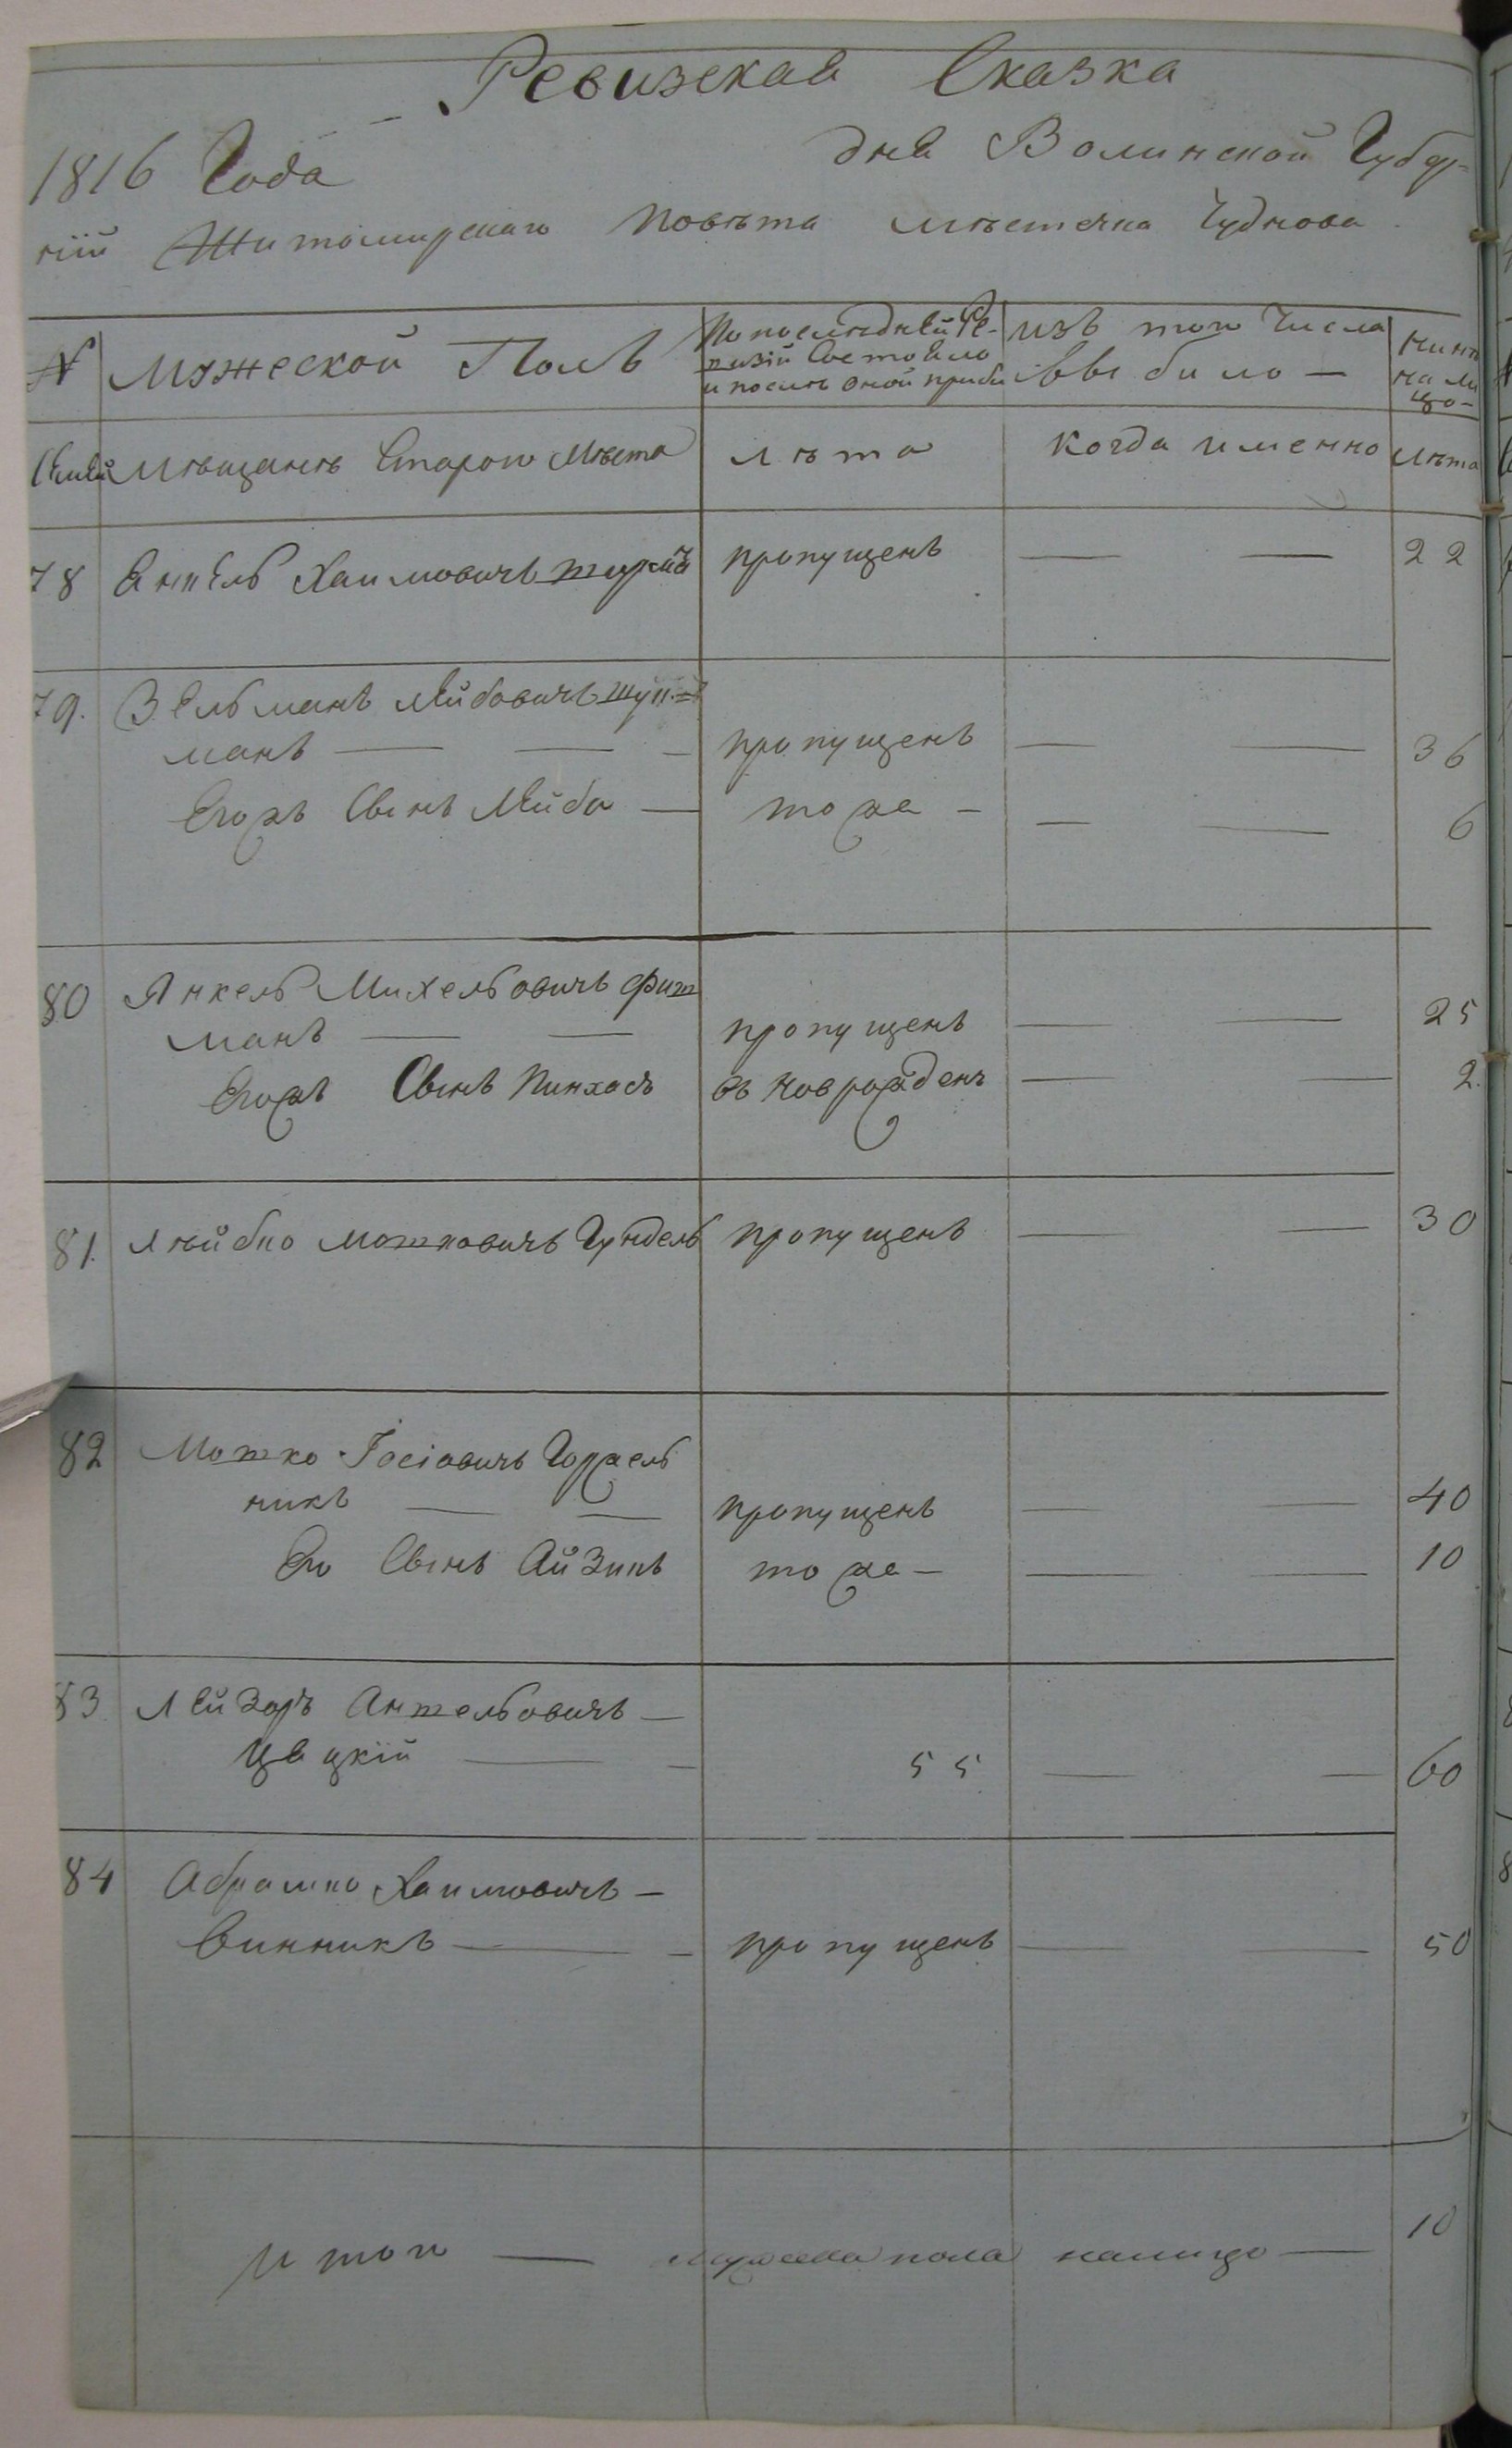 Ревизская Сказка
1816 Года дня Волинской Губер-
ніи Житомирскаго Повѣта мѣстечка Чуднова
№ Мужеской Полъ По последней Ре- изъ того Числа нинѣ
визіи Состояло на ли
и после оной приби ввибило — цо —
Семей Мѣщанѣ Старого Мѣста лѣта когда именно лѣта
78 Янкель Хаимовичъ пропущенъ — — 22
79. Зельманъ Лейбовичъ
манъ — — — пропущенъ — — 36
Егожъ Сынъ Лейба — тоже — — — 6
80 Янкель Михельовичъ Фит
манъ — — пропущенъ — — 25
Егожъ Сынъ Пинхасъ въ Новрожденъ — — 2.
81. Лѣйбко Мотковичъ Гундель пропущенъ — — 30
82 Мотко Іосіовичъ Горжель
никъ — — пропущенъ — — 40
Его Сынъ Айзикъ тоже — — — 10
83 Лейзоръ Антельовичъ —
Цяцкій — — 55 — — 60
84 Абрамко Хаимовичъ —
Винникъ — — пропущенъ — — 50
Итого — мужеска пола налицо — 10